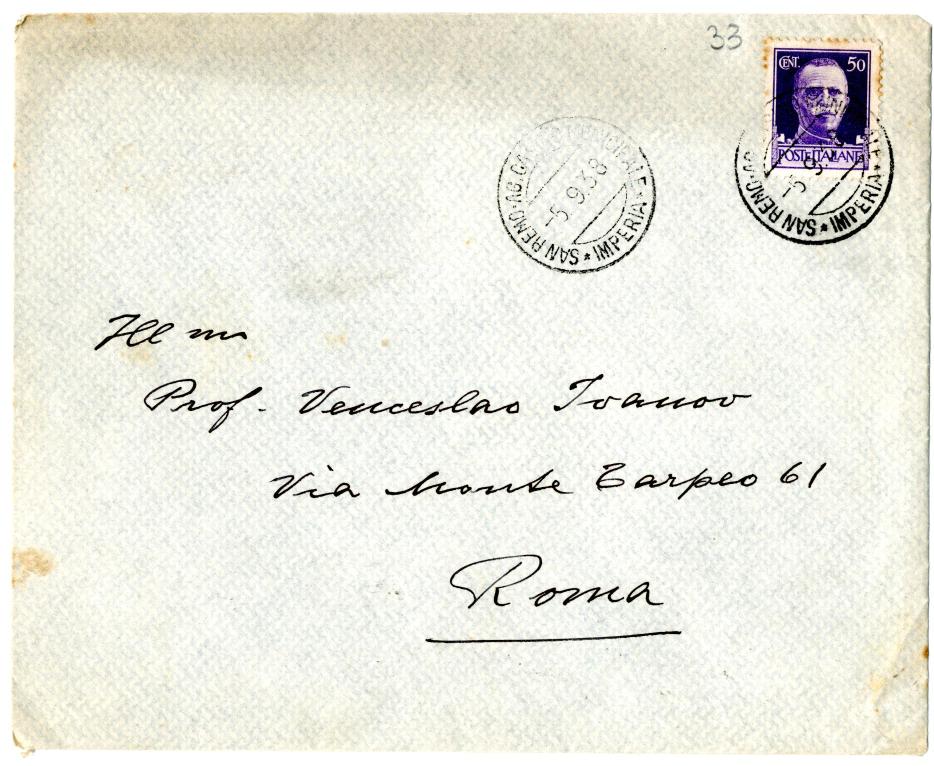 33
CENT. 50
POSTE ITALIANE
SAN REMO-AG. MUNICIPALE * IMPERIA *
-5.9.38
SAN REMO-AG. * IMPERIA *
-5.9.38
Ill mo
Prof. Venceslao Ivanov
Via Monte Tarpeo 61
Roma